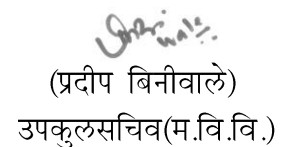 (प्रदीप बिनीवाले)
उपकुलसचिव(म.वि.वि.)